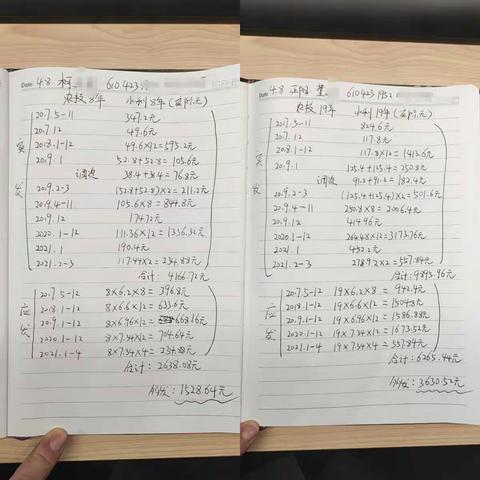 Date 4.8 柯 610423
农技8年 水利8年(实际元)
实发
2017.5-11 347.2元
2017.12 49.6元
2018.1-12 49.6×12=595.2元
2019.1 52.8+52.8=105.6元
调资 38.4+38.4=76.8元
2019.2-3 (52.8+52.8)×2=211.2元
2019.4-11 105.6×8=844.8元
2019.12 174.72元
2020.1-12 111.36×12=1336.32元
2021.1 190.4元
2021.2-3 117.44×2=234.88元
合计: 4166.72元
应发
2017.5-12 8×6.2×8=396.8元
2018.1-12 8×6.6×12=633.6元
2019.1-12 8×6.96×12=668.16元
2020.1-12 8×7.34×12=704.64元
2021.1-4 8×7.34×4=234.88元
合计: 2638.08元
多发: 1528.64元
Date 4.8 610423 1952
农技19年 水利19年(实际元)
实发
2017.5-11 824.6元
2017.12 117.8元
2018.1-12 117.8×12=1413.6元
2019.1 125.4+125.4=250.8元
调资 91.2+91.2=182.4元
2019.2-3 (125.4+125.4)×2=501.6元
2019.4-11 250.8×8=2006.4元
2019.12 414.96元
2020.1-12 264.48×12=3173.76元
2021.1 452.2元
2021.2-3 278.92×2=557.84元
合计: 9895.96元
应发
2017.5-12 19×6.2×8=942.4元
2018.1-12 19×6.6×12=1504.8元
2019.1-12 19×6.96×12=1586.88元
2020.1-12 19×7.34×12=1673.52元
2021.1-4 19×7.34×4=557.84元
合计: 6265.44元
多发: 3630.52元